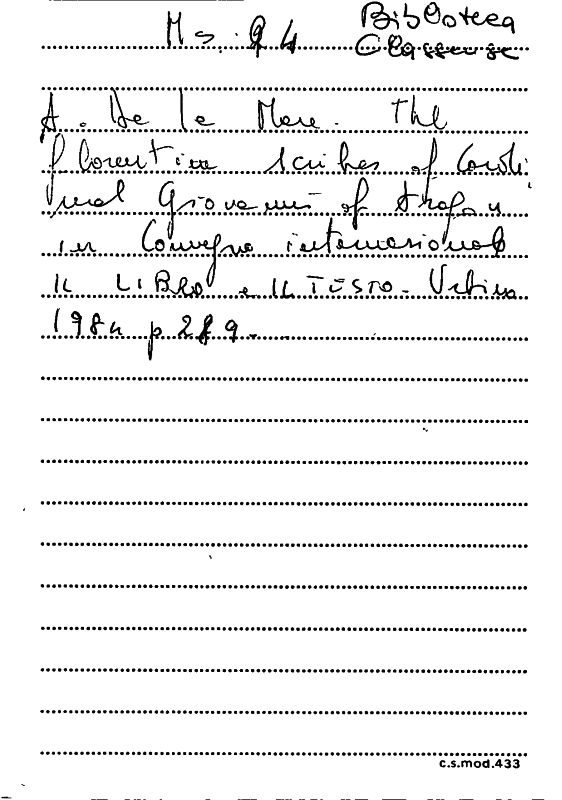 Ms. 94 Biblioteca
Classense
A. De la Mare. The
florentine scribes of Cardi
nal Giovanni of Aragon
in Convegno internazionale
IL LIBRO e IL TESTO. Urbino
1984 p 289.
c.s.mod.433